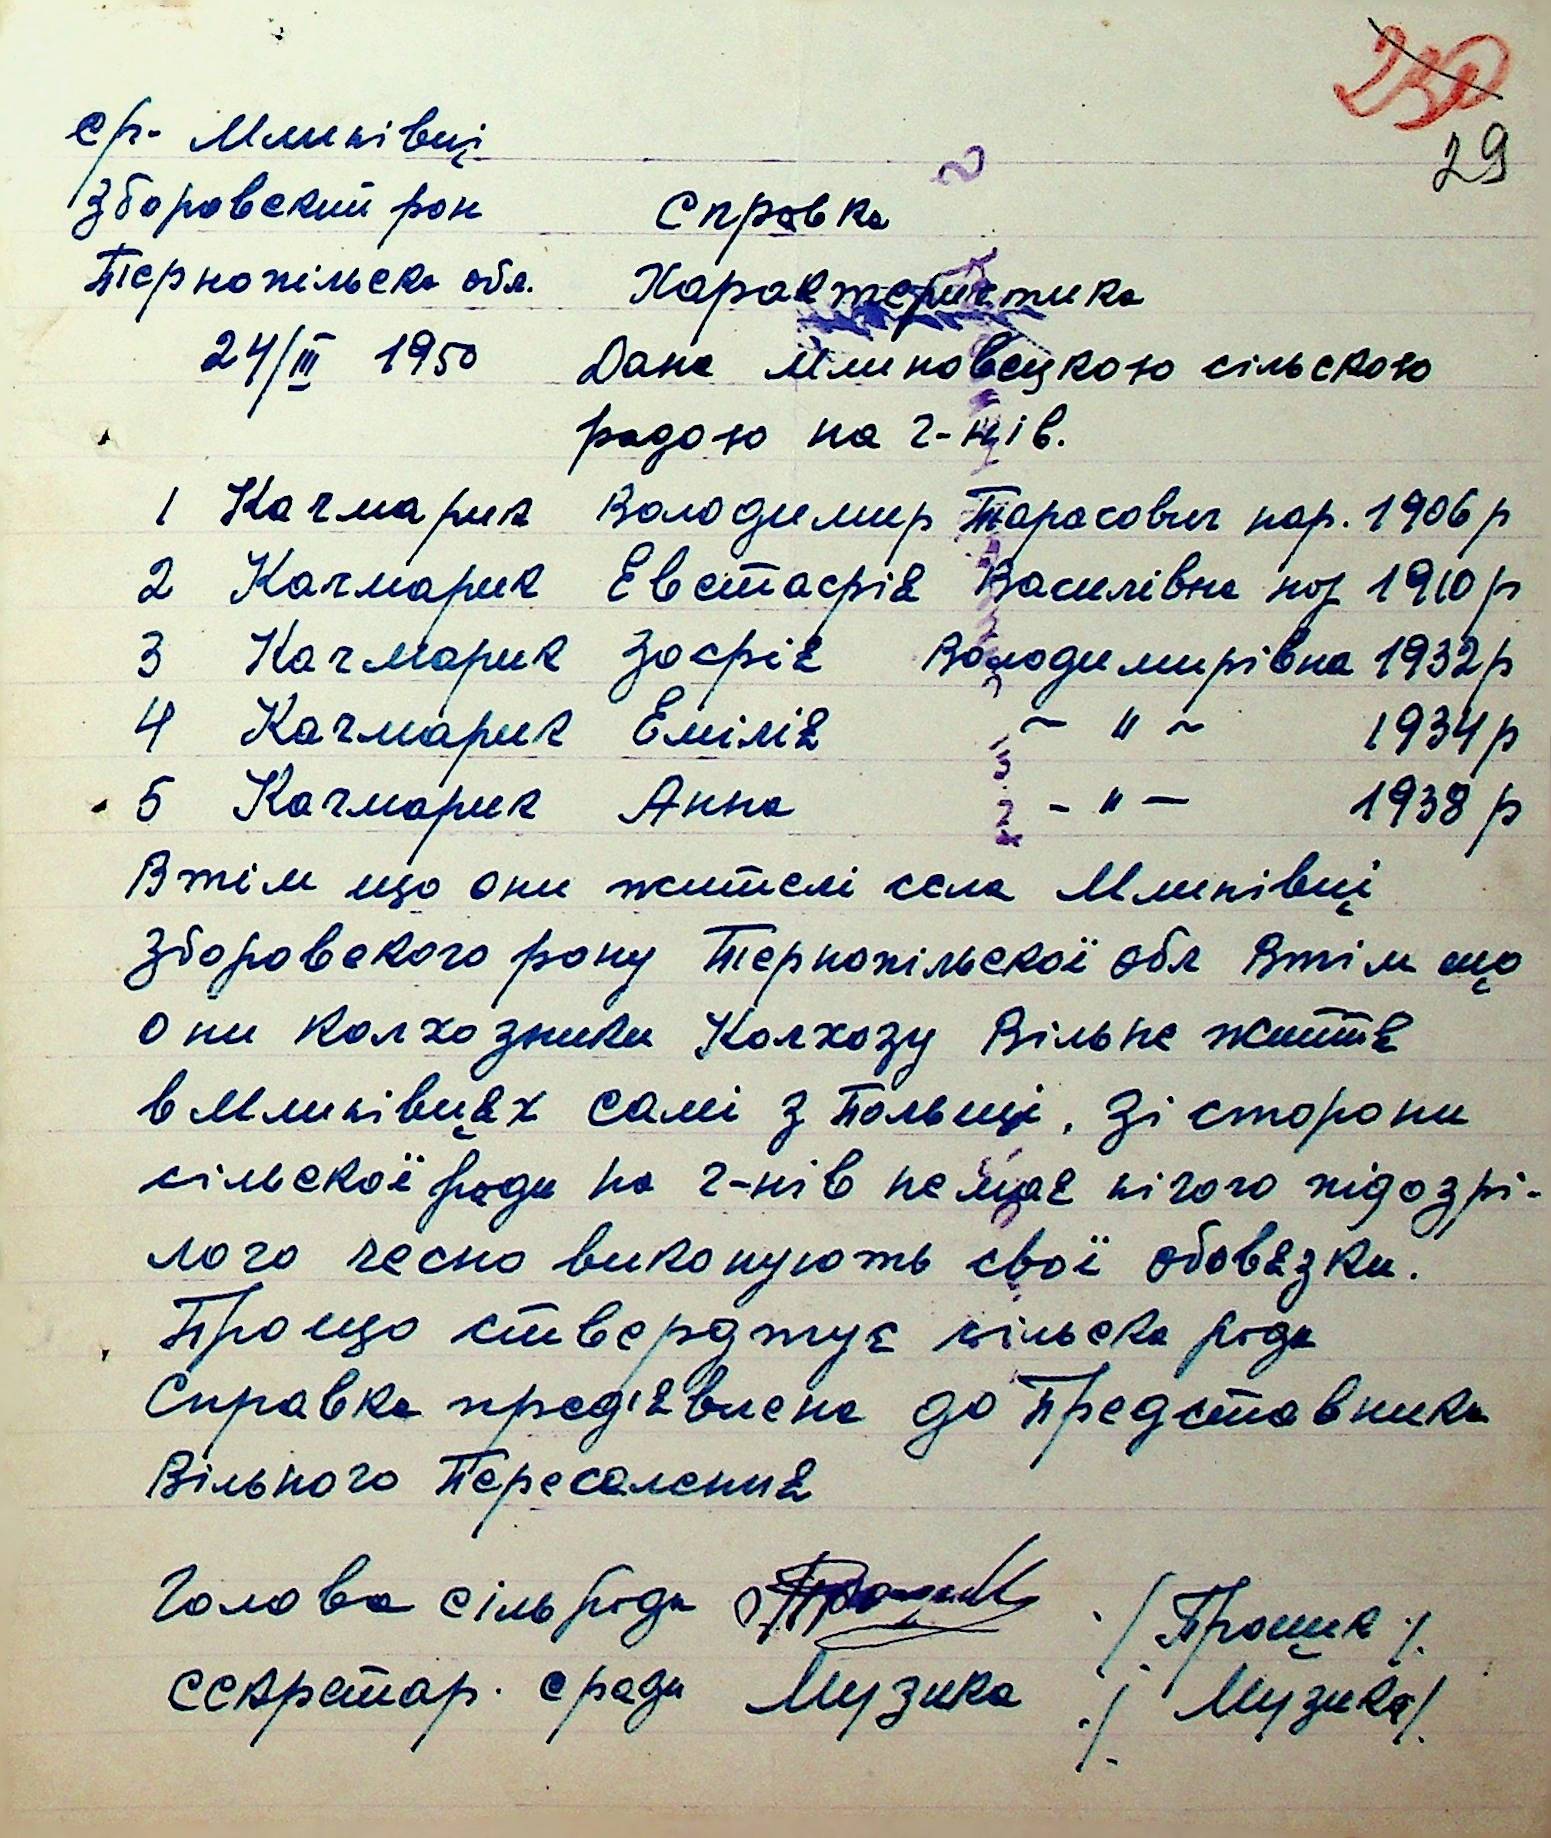 29
с/р- Млинівці
Зборовский рон
Тернопільска обл.
24/III 1950
Справка
Характеристика
Дана Млиновецкою сільскою
радою на г-нів.
1 Качмарик Володимир Тарасович нар. 1906 р
2 Качмарик Евстафія Василівна 1910 р
3 Качмарик Зофія Володимирівна 1932 р
4 Качмарик Емілія ~ " ~ 1934 р
5 Качмарик Анна - " - 1938 р
Втім що они жителі села Млинівці
Зборовского рону Тернопільскої обл Втім що
они колхозники Колхозу Вільне життя
в Млинівцях самі з Польщі, зі сторони
сільскої ради на г-нів немає нічого підозрі-
лого чесно виконують свої обовязки.
Прощо стверджує сільска рада
Справка пред'явлена до Представника
Вільного Переселения
Голова сільради ./ Прощик /.
секретар. с ради Музика ./ Музика /.